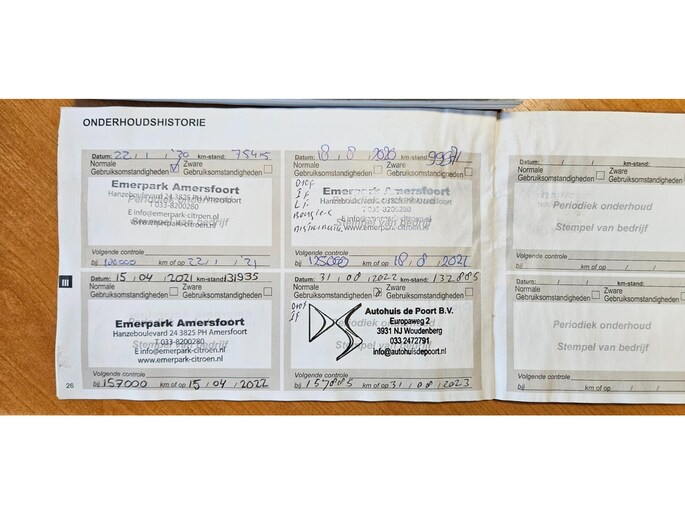 ONDERHOUDSHISTORIE
Datum: 22 / 1 / '20 km-stand: 75415
Normale Gebruiksomstandigheden Zware Gebruiksomstandigheden
Emerpark Amersfoort
Hanzeboulevard 24 3825 PH Amersfoort
T 033-8200280
E info@emerpark-citroen.nl
www.emerpark-citroen.nl
Volgende controle
bij 100000 km of op 22 / 1 / '21
Datum: 18 / 8 / 2020 km-stand: 99971
Normale Gebruiksomstandigheden Zware Gebruiksomstandigheden
Emerpark Amersfoort
Hanzeboulevard 24 3825 PH Amersfoort
T 033-8200280
E info@emerpark-citroen.nl
www.emerpark-citroen.nl
Volgende controle
bij 125000 km of op 18 / 8 / 2021
Datum: / / km-stand:
Normale Gebruiksomstandigheden Zware Gebruiksomstandigheden
Periodiek onderhoud
Stempel van bedrijf
Volgende controle
bij km of op / /
III
Datum: 15 / 04 / 2021 km-stand: 131935
Normale Gebruiksomstandigheden Zware Gebruiksomstandigheden
Emerpark Amersfoort
Hanzeboulevard 24 3825 PH Amersfoort
T 033-8200280
E info@emerpark-citroen.nl
www.emerpark-citroen.nl
Volgende controle
bij 157000 km of op 15 / 04 / 2022
Datum: 31 / 08 / 2022 km-stand: 132885
Normale Gebruiksomstandigheden Zware Gebruiksomstandigheden
Autohuis de Poort B.V.
Europaweg 2
3931 NJ Woudenberg
033 2472791
info@autohuisdepoort.nl
Volgende controle
bij 157885 km of op 31 / 08 / 2023
Datum: / / km-stand:
Normale Gebruiksomstandigheden Zware Gebruiksomstandigheden
Periodiek onderhoud
Stempel van bedrijf
Volgende controle
bij km of op / /
26